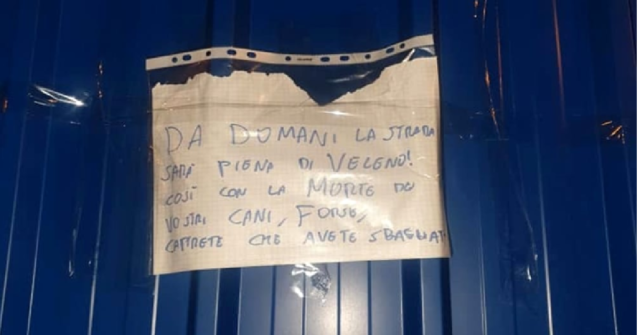 DA DOMANI LA STRADA
SARÀ PIENA DI VELENO!
COSÌ CON LA MORTE DEI
VOSTRI CANI, FORSE,
CAPIRETE CHE AVETE SBAGLIATO